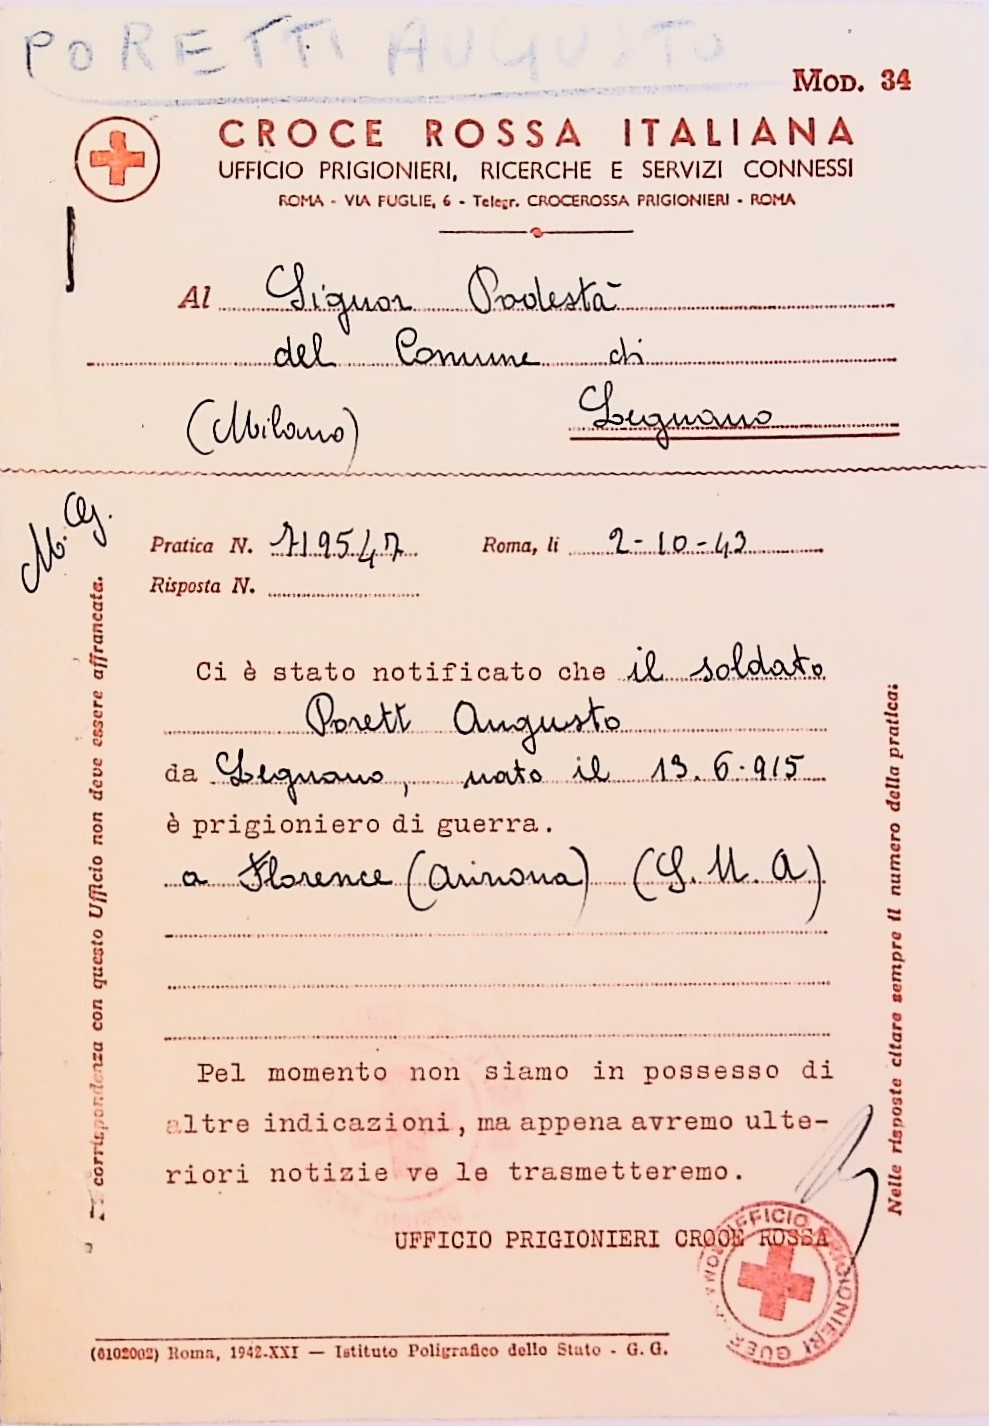 PORETTI AUGUSTO
MOD. 34
CROCE ROSSA ITALIANA
UFFICIO PRIGIONIERI, RICERCHE E SERVIZI CONNESSI
ROMA - VIA PUGLIE, 6 - Telegr. CROCEROSSA PRIGIONIERI - ROMA
Al Signor Podestà
del Comune di
(Milano) Legnano
Pratica N. 719547 Roma, li 2-10-43
Risposta N.
Ci è stato notificato che il soldato
Porett Augusto
da Legnano, nato il 13.6.915
è prigioniero di guerra.
a Florence (Arinona) (S.U.A)
Pel momento non siamo in possesso di
altre indicazioni, ma appena avremo ulte-
riori notizie ve le trasmetteremo.
UFFICIO PRIGIONIERI CROCE ROSSA
(6102002) Roma, 1942-XXI — Istituto Poligrafico dello Stato - G. G.
La corrispondenza con questo Ufficio non deve essere affrancata.
Nelle risposte citare sempre il numero della pratica:
UFFICIO PRIGIONIERI GUER ROMA